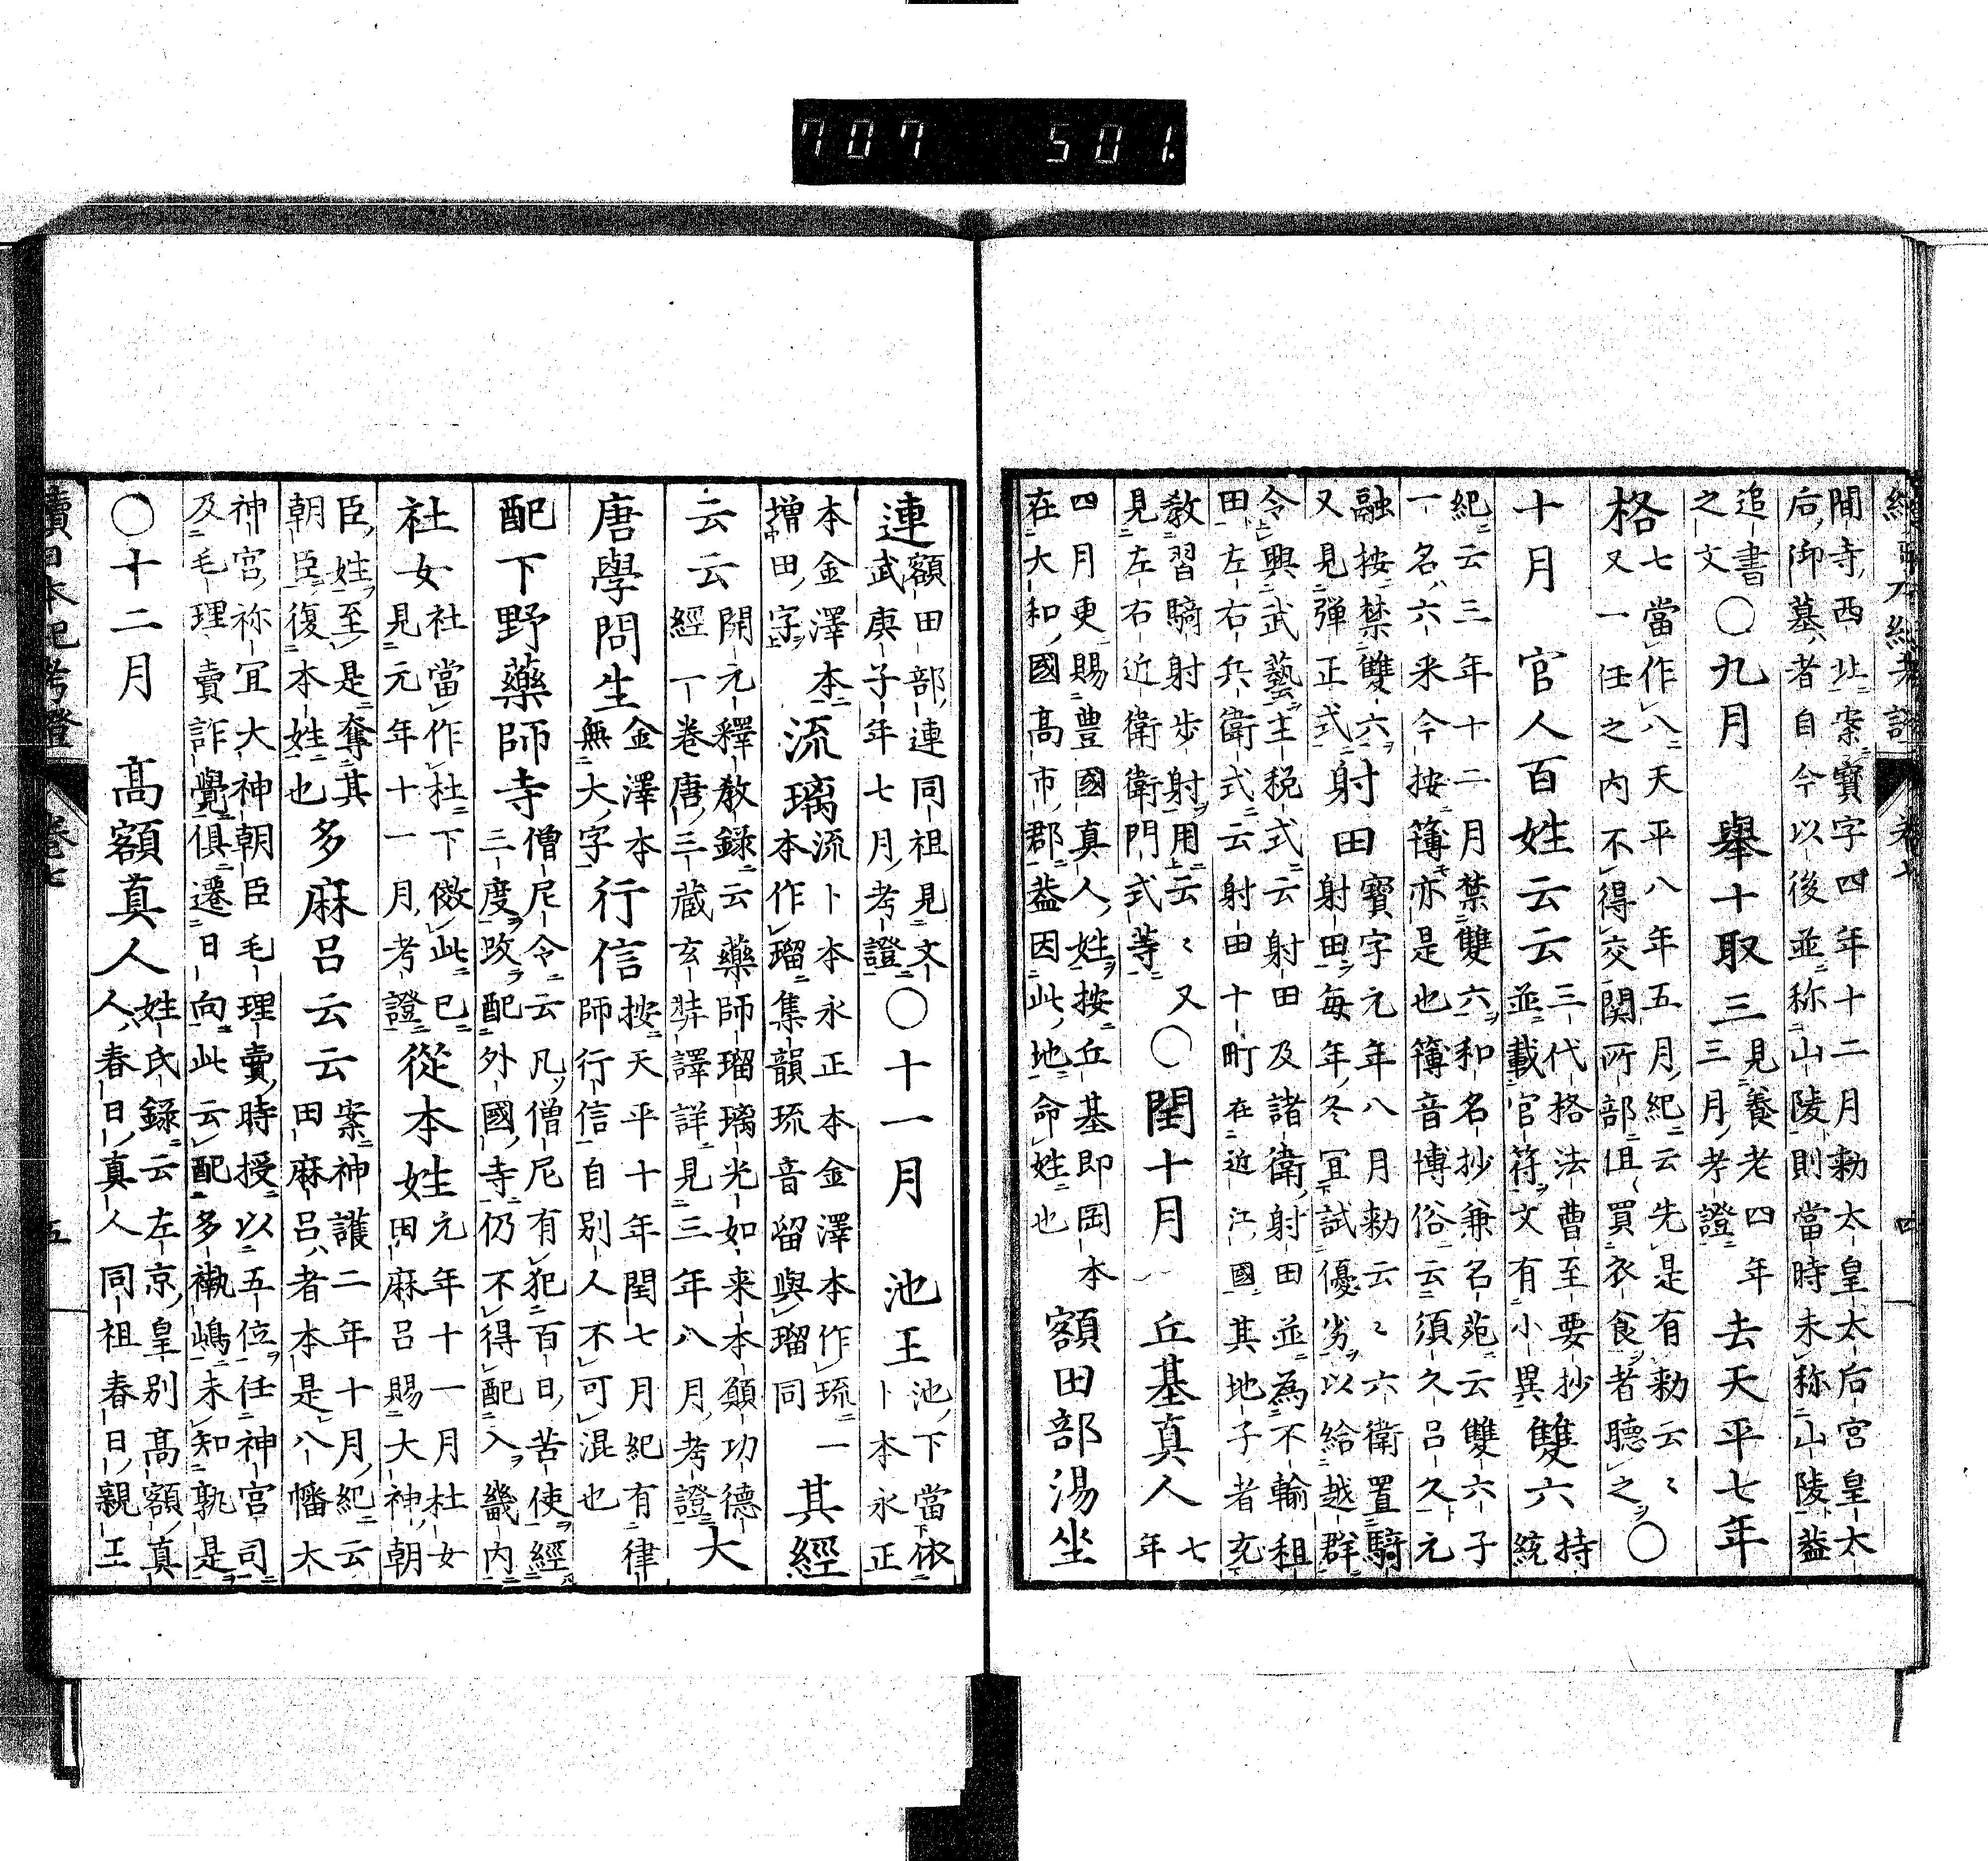 707 501.
續日本紀考證 卷七 四
間寺西北案寳字四年十二月勅太皇太后宮皇太
后御墓者自今以後並称山陵則當時未称山陵益
追書
之文
○九月 舉十取三
見養老四年
三月考證
去天平七年
格
七當作八天平八年五月紀云先是有勅云〻
又一任之內不得交関所部但買衣食者聽之
○
十月 官人百姓云云
三代格法曹至要抄
並載官符文有小異
雙六
持
統
紀云三年十二月禁雙六和名抄兼名苑云雙六子
一名六采今按簿亦是也簿音博俗云須久呂久元
融按禁雙六
又見彈正式
射田
寳字元年八月勅云〻六衛置騎
射田每年冬宜試優劣以給越群
令興武藝主税式云射田及諸衛射田並為不輸租
田左右兵衛式云射田十町在近江國其地子者充
教習騎射步射用云〻又
見左右近衛衛門式等
○閏十月 丘基真人
七
年
四月更賜豊國真人姓按丘基即岡本
在大和國高市郡益因此地命姓也
額田部湯坐
連
額田部連同祖見文
武庚子年七月考證
○十一月 池王
池下當依
卜本永正
本金澤本
增田字
流璃
流卜本永正本金澤本作琉
本作瑠集韻琉音留與瑠同
一其經
云云
開元釋教録云藥師瑠璃光如来本願功德
經一卷唐三藏玄奘譯詳見三年八月考證
大
唐學問生
金澤本
無大字
行信
按天平十年閏七月紀有律
師行信自別人不可混也
配下野藥師寺
僧尼令云凡僧尼有犯百日苦使經
三度改配外國寺仍不得配入畿內
社女
社當作杜下倣此已
見元年十一月考證
從本姓
元年十一月杜女
田麻呂賜大神朝
臣姓至是奪其
朝臣復本姓也
多麻呂云云
案神護二年十月紀云
田麻呂者本是八幡大
神宮祢宜大神朝臣毛理賣時授以五位任神宮司
及毛理賣詐覺俱遷日向此云配多褹嶋未知孰是
○十二月 高額真人
姓氏録云左京皇別高額真
人春日真人同祖春日親王
續日本紀考證 卷七 五